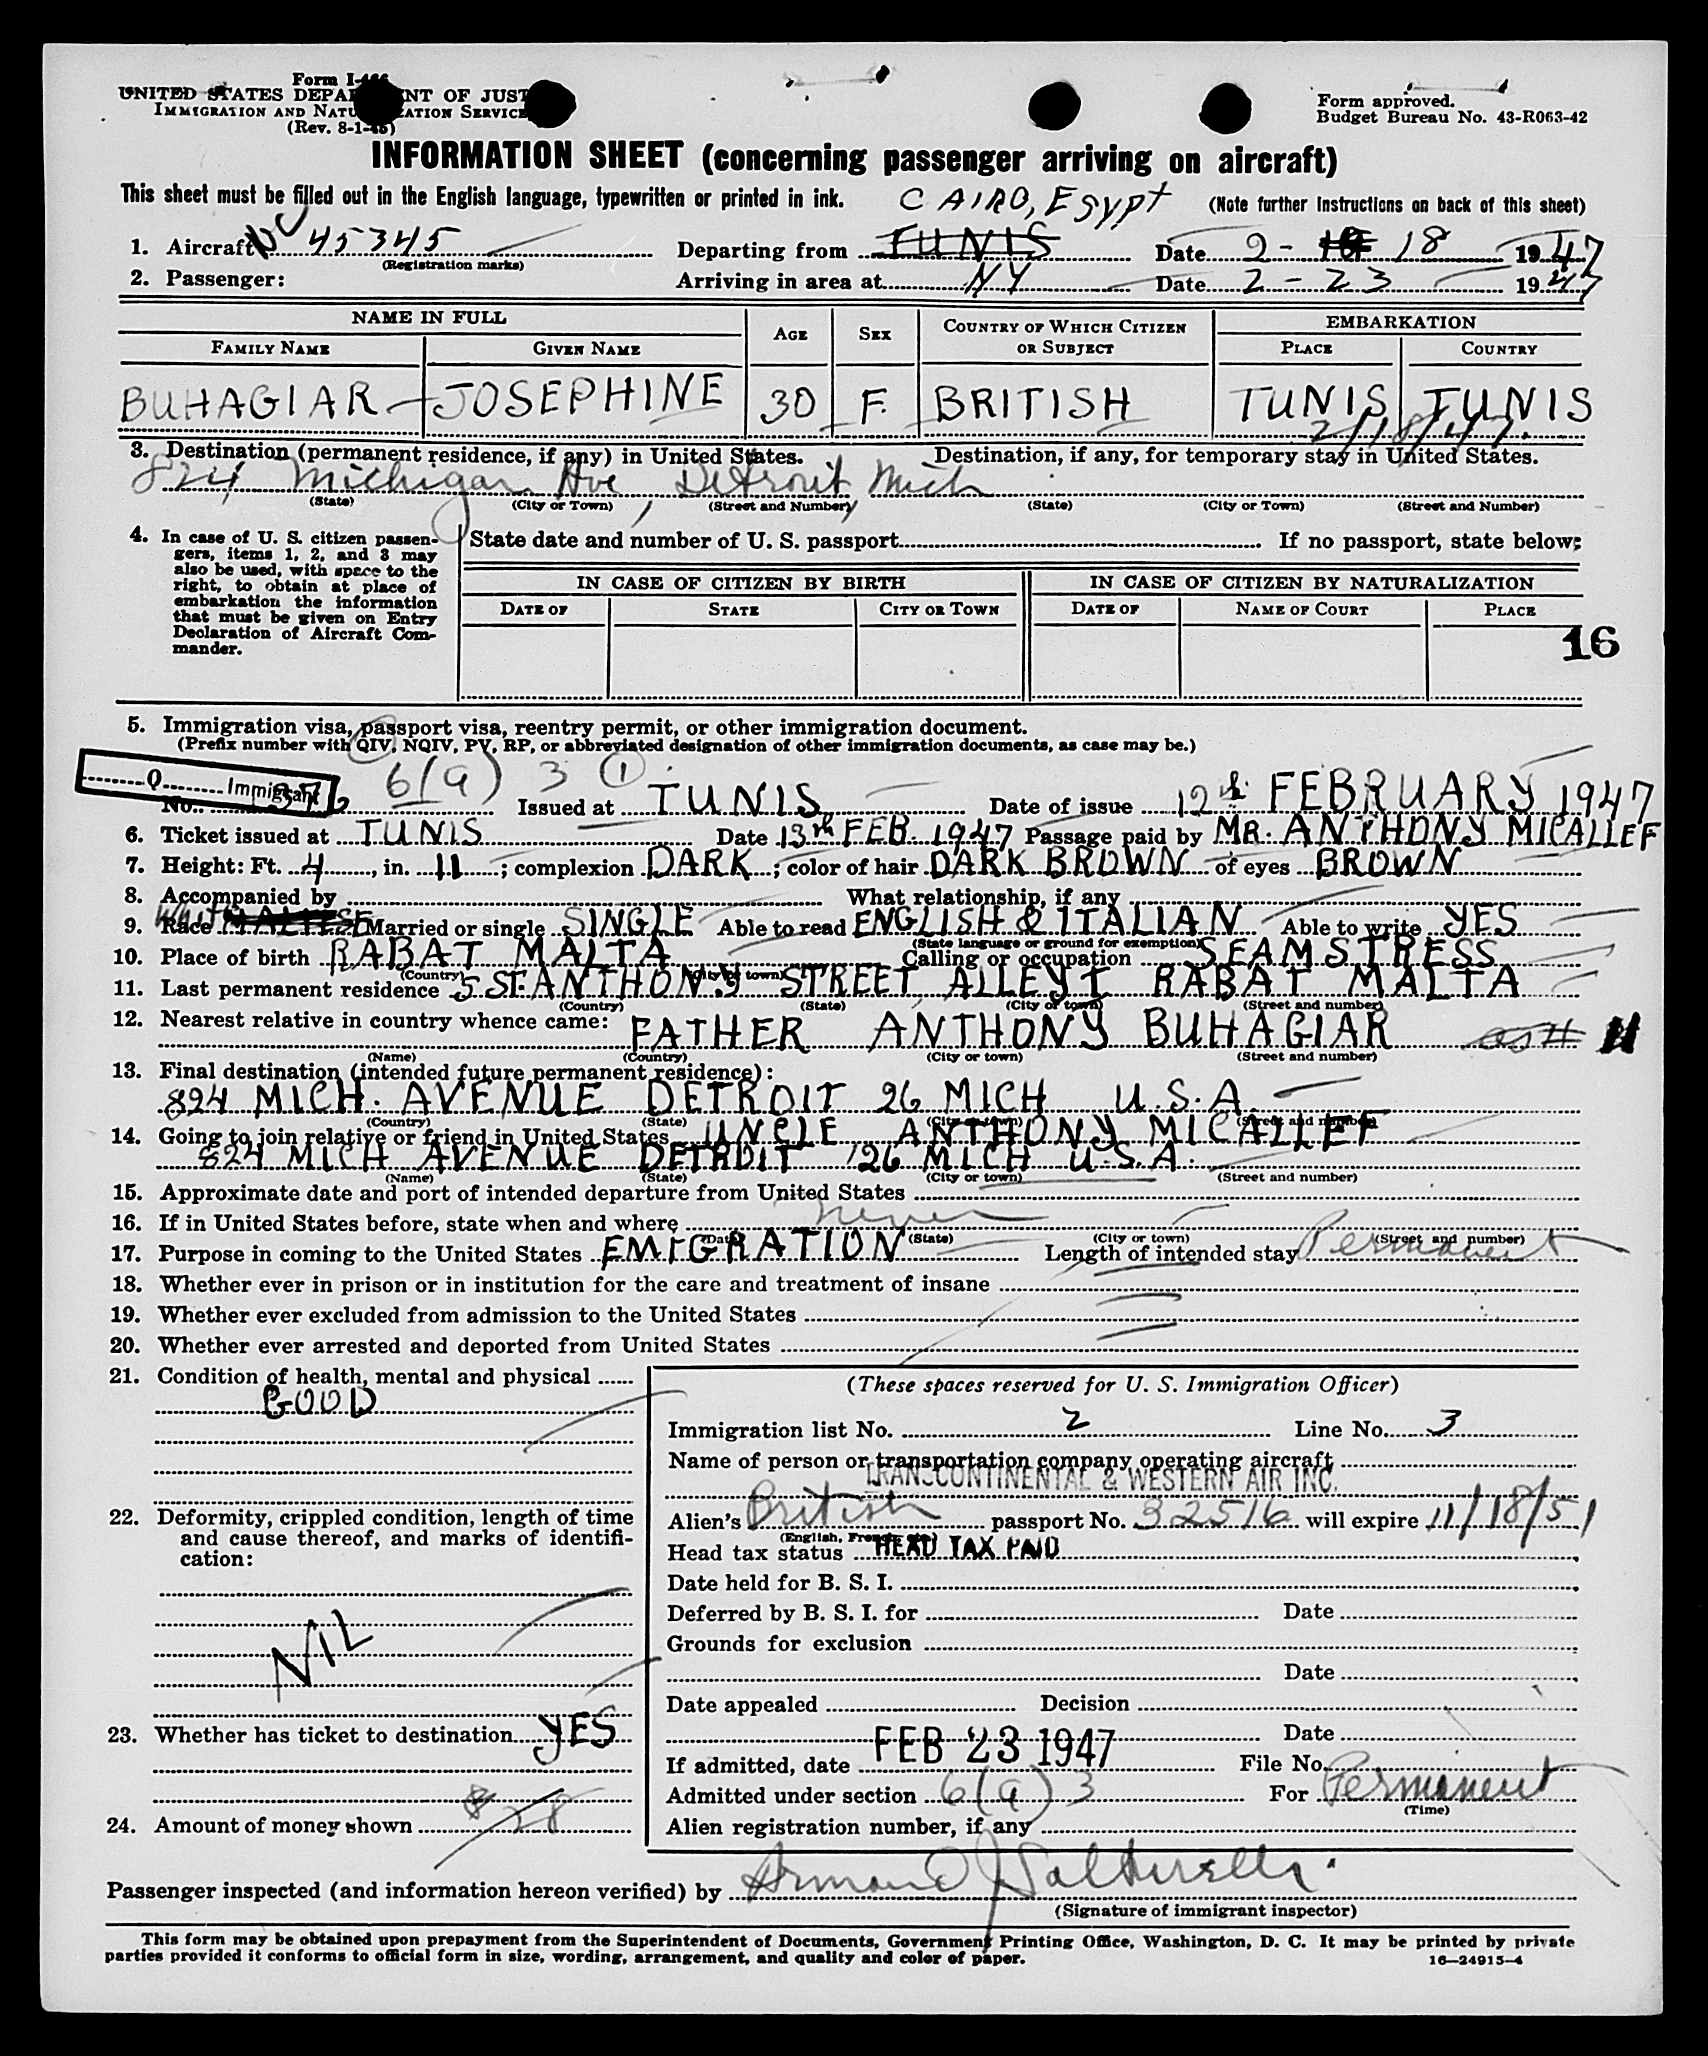 Form I-466
UNITED STATES DEPARTMENT OF JUSTICE
IMMIGRATION AND NATURALIZATION SERVICE
(Rev. 8-1-45)
Form approved.
Budget Bureau No. 43-R063-42
INFORMATION SHEET (concerning passenger arriving on aircraft)
This sheet must be filled out in the English language, typewritten or printed in ink. CAIRO, EGYPT (Note further instructions on back of this sheet)
1. Aircraft NC 45345 Departing from TUNIS Date 2- 18 1947
(Registration marks)
2. Passenger: Arriving in area at NY Date 2-23 1947
NAME IN FULL AGE SEX COUNTRY OF WHICH CITIZEN OR SUBJECT EMBARKATION
FAMILY NAME GIVEN NAME PLACE COUNTRY
BUHAGIAR JOSEPHINE 30 F. BRITISH TUNIS TUNIS
2/18/47.
3. Destination (permanent residence, if any) in United States. Destination, if any, for temporary stay in United States.
824 Michigan Ave, Detroit, Mich
(State) (City or Town) (Street and Number) (State) (City or Town) (Street and Number)
4. In case of U. S. citizen passengers, items 1, 2, and 3 may also be used, with space to the right, to obtain at place of embarkation the information that must be given on Entry Declaration of Aircraft Commander.
State date and number of U. S. passport If no passport, state below:
IN CASE OF CITIZEN BY BIRTH IN CASE OF CITIZEN BY NATURALIZATION
DATE OF STATE CITY OR TOWN DATE OF NAME OF COURT PLACE
16
5. Immigration visa, passport visa, reentry permit, or other immigration document.
(Prefix number with QIV, NQIV, PV, RP, or abbreviated designation of other immigration documents, as case may be.)
Q Immigrant 6(a) 3 (1)
No. Issued at TUNIS Date of issue 12th FEBRUARY 1947
6. Ticket issued at TUNIS Date 13th FEB. 1947 Passage paid by MR. ANTHONY MICALLEF
7. Height: Ft. 4, in. 11; complexion DARK; color of hair DARK BROWN of eyes BROWN
8. Accompanied by What relationship, if any
9. Race White MALTESE Married or single SINGLE Able to read ENGLISH & ITALIAN Able to write YES
(State language or ground for exemption)
10. Place of birth RABAT MALTA Calling or occupation SEAMSTRESS
(Country) (City or town)
11. Last permanent residence 5 ST. ANTHONY STREET, ALLEY 1 RABAT MALTA
(Country) (State) (City or town) (Street and number)
12. Nearest relative in country whence came: FATHER ANTHONY BUHAGIAR as # 11
(Name) (Country) (City or town) (Street and number)
13. Final destination (intended future permanent residence):
824 MICH. AVENUE DETROIT 26 MICH U.S.A.
(Country) (State) (City or town) (Street and number)
14. Going to join relative or friend in United States UNCLE ANTHONY MICALLEF
824 MICH AVENUE DETROIT 26 MICH U.S.A.
(Name) (State) (City or town) (Street and number)
15. Approximate date and port of intended departure from United States
16. If in United States before, state when and where never
(Date) (State) (City or town) (Street and number)
17. Purpose in coming to the United States EMIGRATION Length of intended stay Permanent
18. Whether ever in prison or in institution for the care and treatment of insane
19. Whether ever excluded from admission to the United States
20. Whether ever arrested and deported from United States
21. Condition of health, mental and physical
GOOD
22. Deformity, crippled condition, length of time and cause thereof, and marks of identification:
NIL
23. Whether has ticket to destination YES
24. Amount of money shown $ 28
(These spaces reserved for U. S. Immigration Officer)
Immigration list No. 2 Line No. 3
Name of person or transportation company operating aircraft
TRANSCONTINENTAL & WESTERN AIR INC.
Alien's British passport No. 32516 will expire 11/18/51
(English, French, etc.)
Head tax status HEAD TAX PAID
Date held for B. S. I.
Deferred by B. S. I. for Date
Grounds for exclusion
Date
Date appealed Decision
Date
If admitted, date FEB 23 1947 File No.
Admitted under section 6(a) 3 For Permanent
(Time)
Alien registration number, if any
Passenger inspected (and information hereon verified) by Armand J.
(Signature of immigrant inspector)
This form may be obtained upon prepayment from the Superintendent of Documents, Government Printing Office, Washington, D. C. It may be printed by private
parties provided it conforms to official form in size, wording, arrangement, and quality and color of paper. 16—24915-4